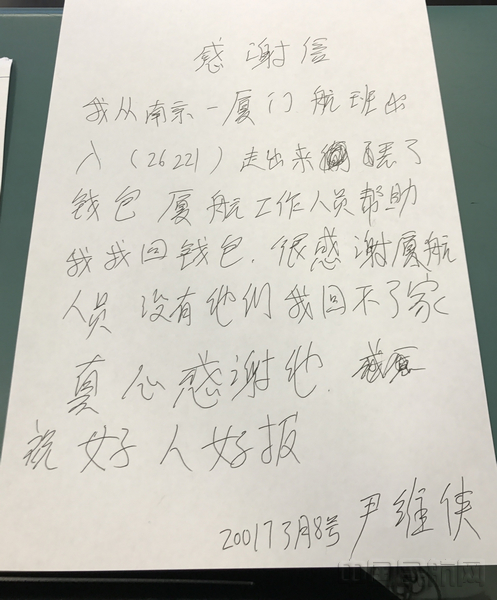 感谢信
我从南京一厦门航班出
入(26221)走出来 丢了
钱包 厦航工作人员帮助
我找回钱包.很感谢厦航
人员 没有他们我回不了家
真心感谢他.
祝好人好报
200173月8号 尹维侠